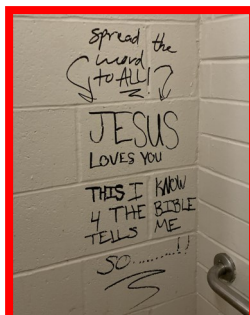 Spread the
word
to ALL!
JESUS
LOVES YOU
THIS I KNOW
4 THE BIBLE
TELLS ME
SO.........!!